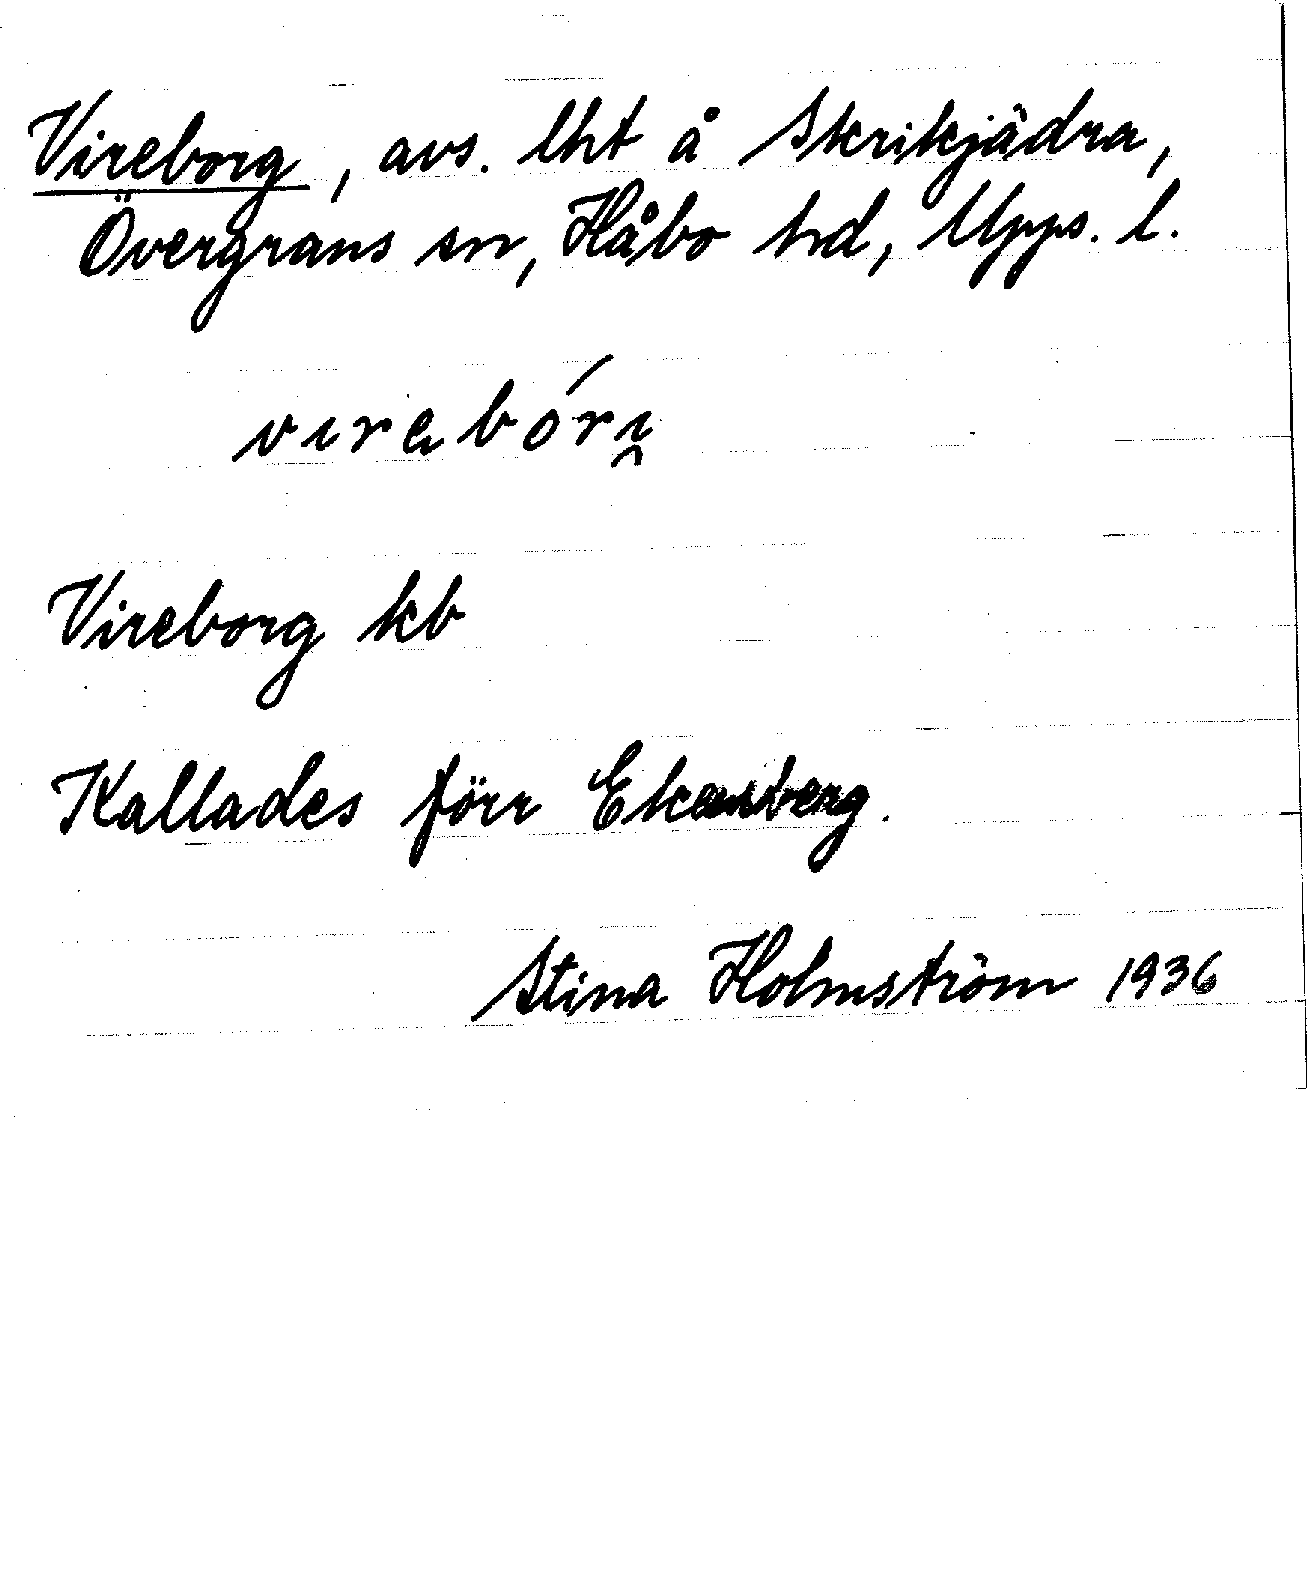 Vireborg, avs. lht å Skrikjädra,
Övergrans sn, Håbo hd, Upps. l.
virebóri̯
Vireborg kb
Kallades förr Ekensberg.
Stina Holmström 1936